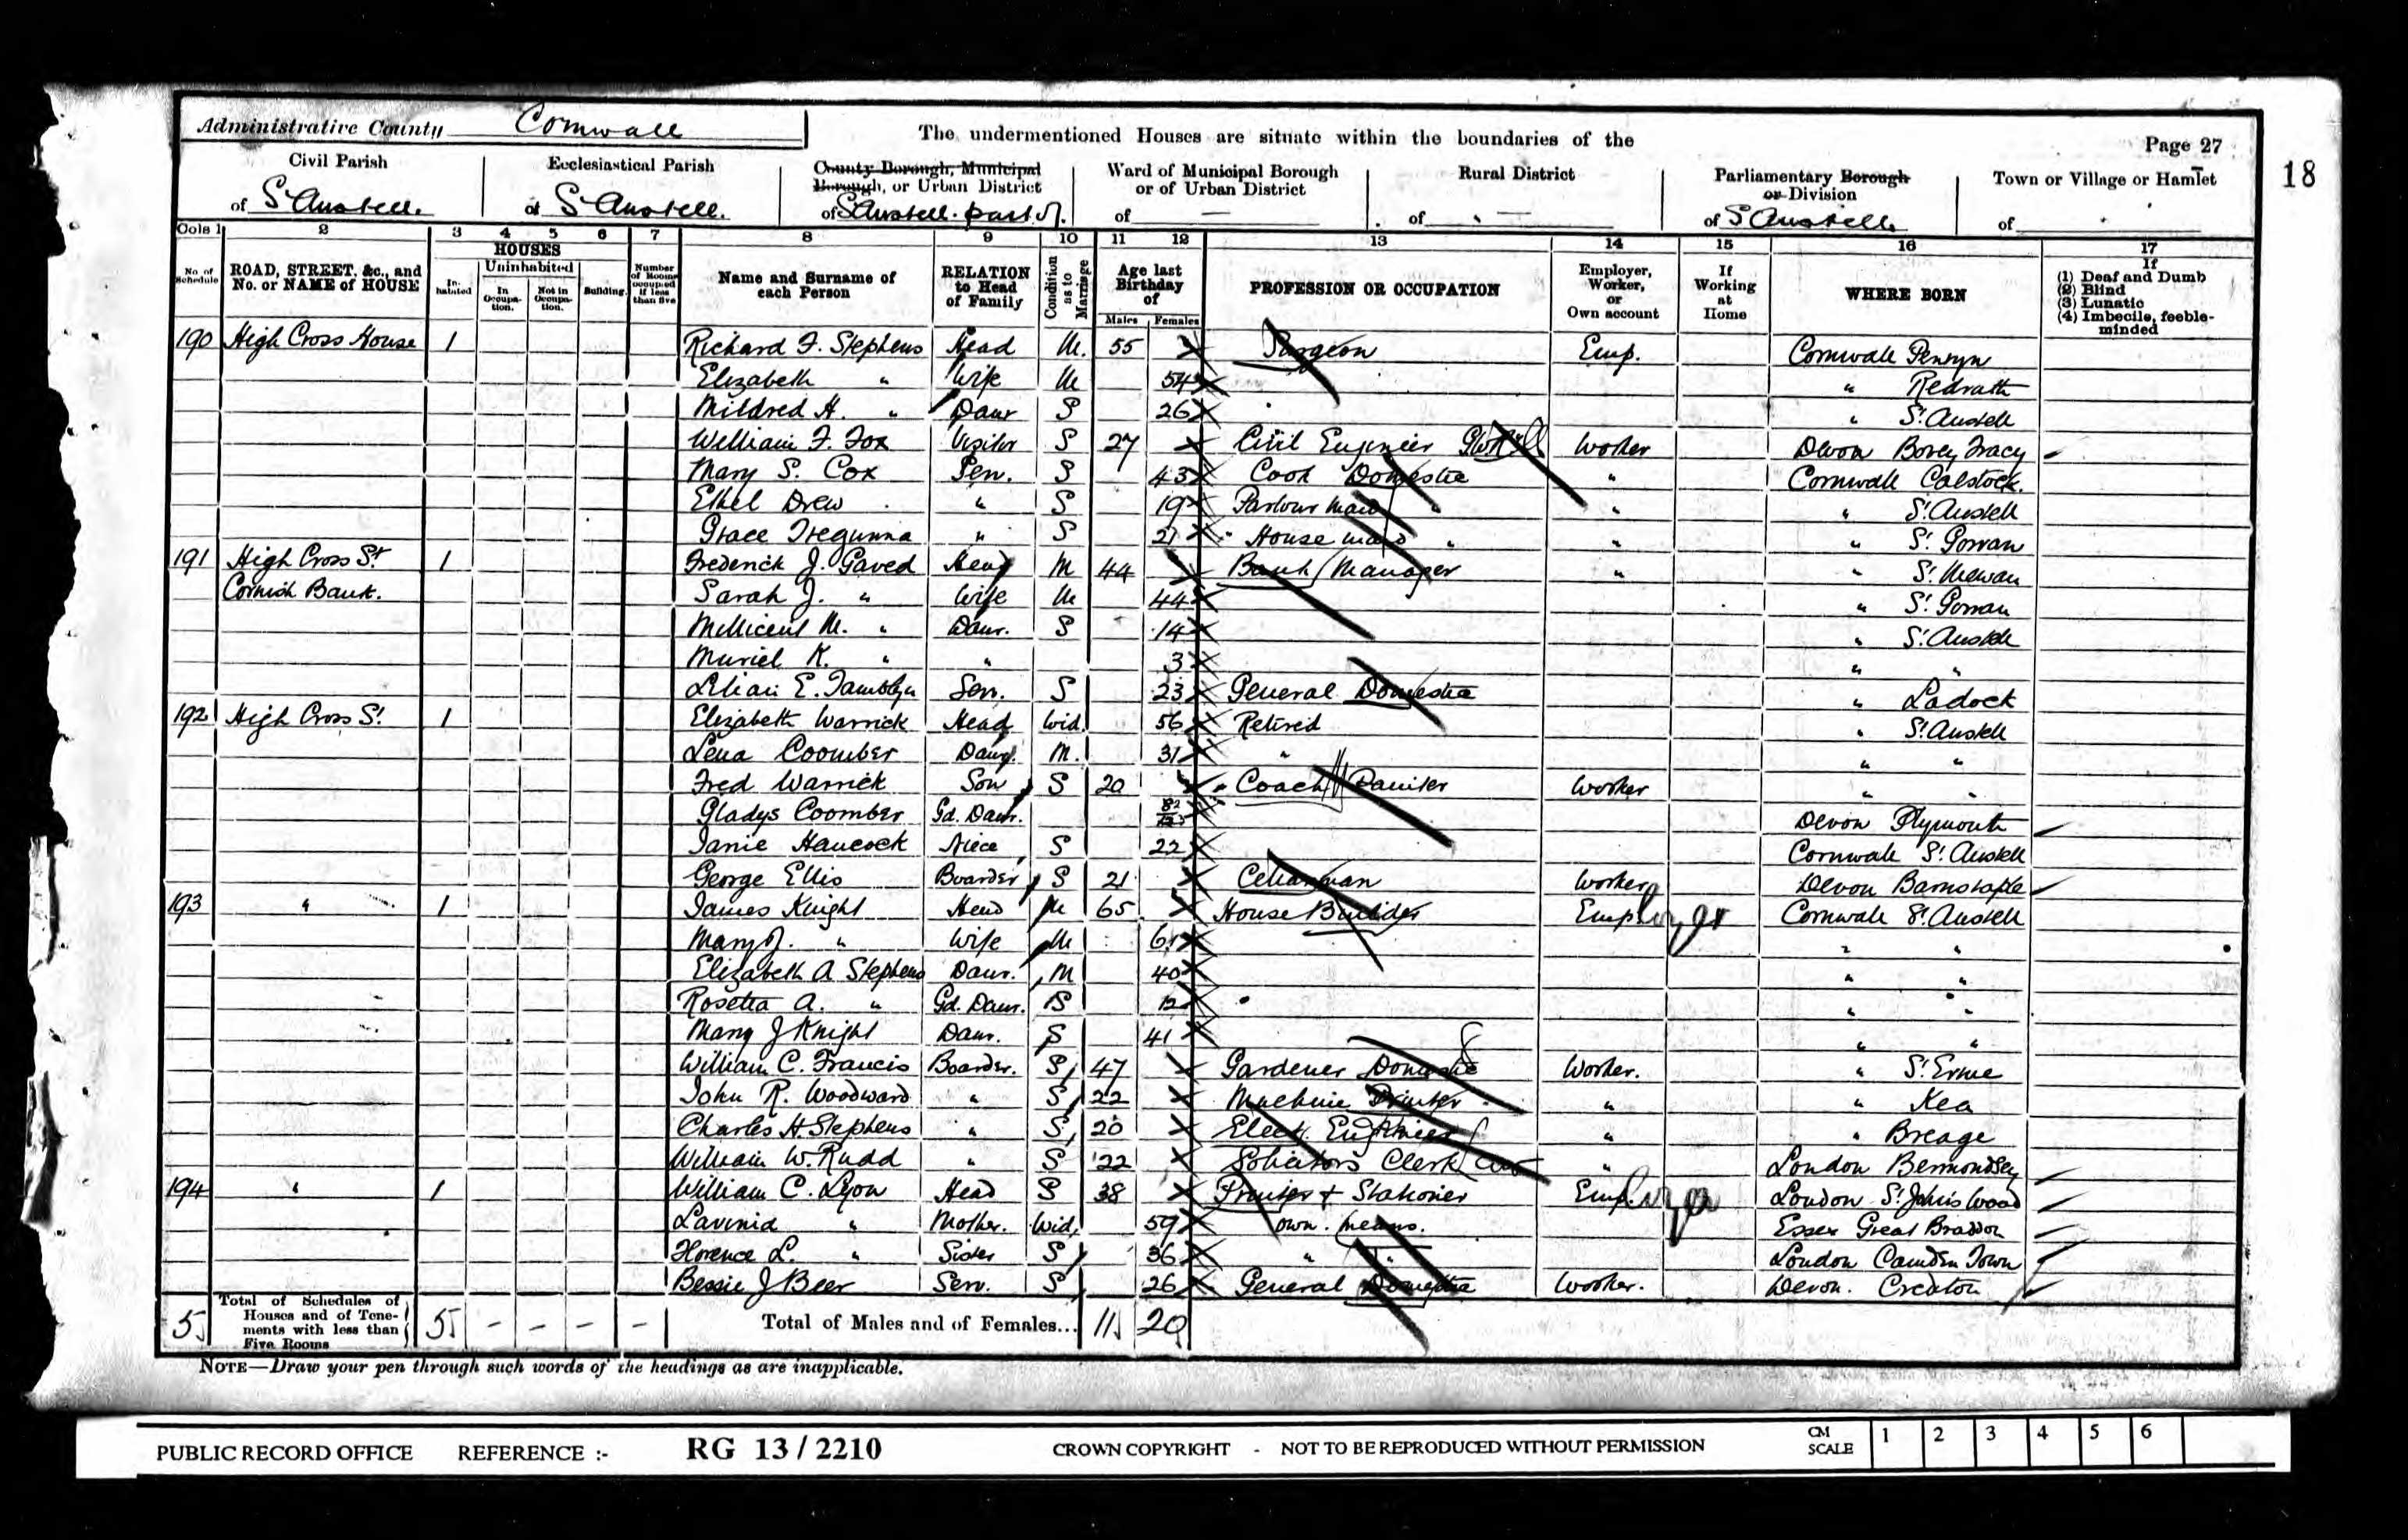 Administrative County Cornwall
The undermentioned Houses are situate within the boundaries of the
Page 27
18
Civil Parish of St Austell.
Ecclesiastical Parish of St Austell.
County Borough, Municipal Borough, or Urban District of St Austell. part of.
Ward of Municipal Borough or of Urban District of —
Rural District of —
Parliamentary Borough or Division of St Austell
Town or Village or Hamlet of
Cols 1 2 3 4 5 6 7 8 9 10 11 12 13 14 15 16 17
No. of Schedule
ROAD, STREET, &c., and No. or NAME of HOUSE
HOUSES
Inhabited
Uninhabited
In Occupation.
Not in Occupation.
Building.
Number of Rooms occupied if less than five
Name and Surname of each Person
RELATION to Head of Family
Condition as to Marriage
Age last Birthday of
Males Females
PROFESSION OR OCCUPATION
Employer, Worker, or Own account
If Working at Home
WHERE BORN
If (1) Deaf and Dumb (2) Blind (3) Lunatic (4) Imbecile, feeble-minded
190 High Cross House 1 Richard F. Stephens Head M. 55 Surgeon Emp. Cornwall Penryn
Elizabeth " Wife M 54 " Redruth
Mildred H. " Daur S 26 " St Austell
William F. Fox Visitor S 27 Civil Engineer Worker Devon Bovey Tracy
Mary S. Cox Serv. S 43 Cook Domestic " Cornwall Calstock.
Ethel Drew " S 19 Parlour Maid " " " St Austell
Grace Tregunna " S 21 House maid " " " St Gorran
191 High Cross St 1 Frederick J. Gaved Head M 44 Bank Manager " " St Mewan
Cornish Bank. Sarah J. " Wife M 44 " St Gorran
Millicent M. " Daur. S 14 " St Austell
Muriel K. " " 3 " "
Lilian E. Tamblyn Serv. S 23 General Domestic " Ladock
192 High Cross St. 1 Elizabeth Warrick Head Wid. 56 Retired " St Austell
Lena Coomber Daur. M. 31 " " "
Fred Warrick Son S 20 Coach Painter Worker " "
Gladys Coomber Gd. Daur. Devon Plymouth
Janie Hancock Niece S 22 Cornwall St Austell
George Ellis Boarder S 21 Cellarman Worker Devon Barnstaple
193 " 1 James Knight Head M 65 House Builder Employer Cornwall St Austell
Mary J. " Wife M 61 " "
Elizabeth A Stephens Daur. M 40 " "
Rosetta A. " Gd. Daur. S 12 " "
Mary J Knight Daur. S 41 " "
William C. Francis Boarder. S 47 Gardener Domestic Worker. " St Erme
John R. Woodward " S 22 Machine Printer " " Kea
Charles H. Stephens " S 20 Elect. Engineer " " Breage
William W. Rudd " S 22 Solicitors Clerk " London Bermondsey
194 " 1 William C. Lyon Head S 38 Printer & Stationer Employer London St John's Wood
Lavinia " Mother. Wid. 59 own means. Essex Great
Florence L. " Sister S 36 " " London Camden Town
Bessie J Beer Serv. S 26 General Domestic Worker. Devon. Crediton
5 Total of Schedules of Houses and of Tenements with less than Five Rooms 5 - - - - Total of Males and of Females... 11 20
NOTE—Draw your pen through such words of the headings as are inapplicable.
PUBLIC RECORD OFFICE REFERENCE :- RG 13 / 2210 CROWN COPYRIGHT - NOT TO BE REPRODUCED WITHOUT PERMISSION CM SCALE 1 2 3 4 5 6